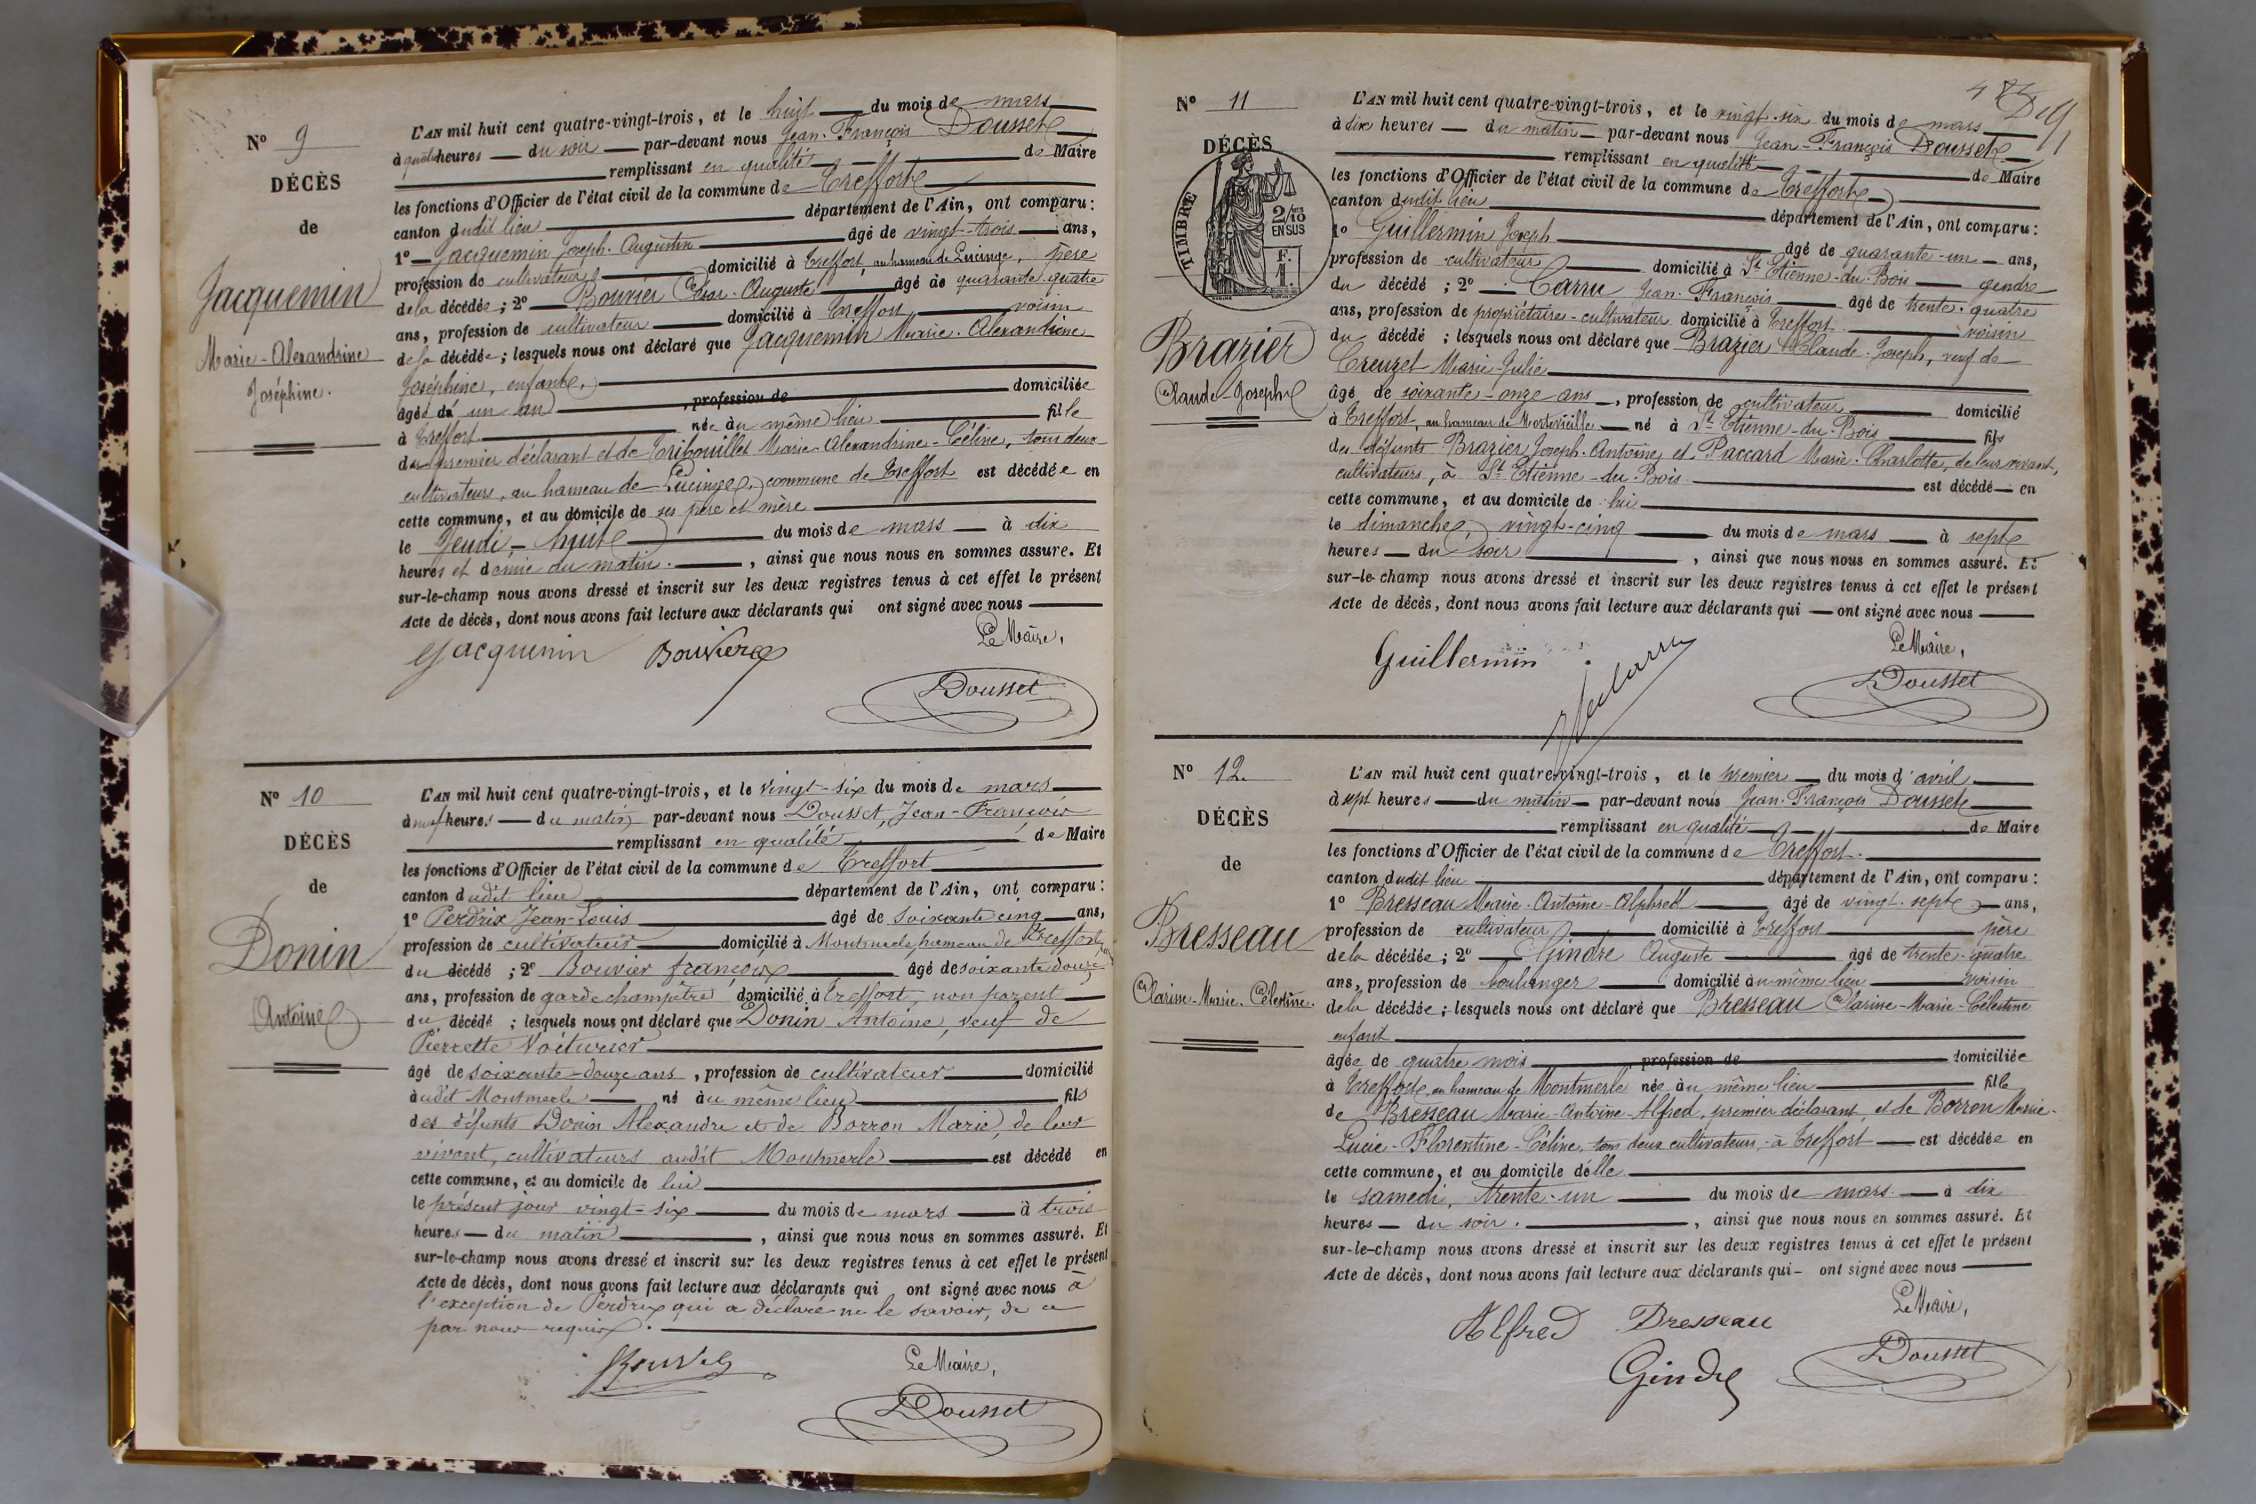 N° 9
DÉCÈS
de
Jacquemin
Marie-Alexandrine
Joséphine.
L'AN mil huit cent quatre-vingt-trois, et le huit du mois de mars
à quatre heures du soir par-devant nous Jean-François Dousset
remplissant en qualité de Maire
les fonctions d'Officier de l'état civil de la commune de Treffort
canton dudit lieu département de l'Ain, ont comparu :
1° Jacquemin Joseph-Augustin âgé de vingt-trois ans,
profession de cultivateur domicilié à Treffort, au hameau de Lucinge, père
de la décédée ; 2° Bouvier César-Auguste âgé de quarante-quatre
ans, profession de cultivateur domicilié à Treffort voisin
de la décédée ; lesquels nous ont déclaré que Jacquemin Marie-Alexandrine
Joséphine, enfant,
âgée de un an , profession de domiciliée
à Treffort née au même lieu fille
du premier déclarant et de Tribouillet Marie-Alexandrine-Céline, tous deux
cultivateurs, au hameau de Lucinge, commune de Treffort est décédée en
cette commune, et au domicile de ses père et mère
le Jeudi, huit du mois de mars à dix
heures et demie du matin. , ainsi que nous nous en sommes assuré. Et
sur-le-champ nous avons dressé et inscrit sur les deux registres tenus à cet effet le présent
Acte de décès, dont nous avons fait lecture aux déclarants qui ont signé avec nous
Le Maire,
Jacquemin Bouvier
Dousset
N° 10
DÉCÈS
de
Donin
Antoine
L'AN mil huit cent quatre-vingt-trois, et le vingt-six du mois de mars
à neuf heures du matin par-devant nous Dousset, Jean-François
remplissant en qualité de Maire
les fonctions d'Officier de l'état civil de la commune de Treffort
canton dudit lieu département de l'Ain, ont comparu :
1° Perdrix Jean-Louis âgé de soixante cinq ans,
profession de cultivateur domicilié à Montmerle, hameau de Treffort,
du décédé ; 2° Bouvier françois âgé de soixante douze
ans, profession de garde champêtre domicilié à Treffort, non parent
du décédé ; lesquels nous ont déclaré que Donin Antoine, veuf de
Pierrette Voiturier
âgé de soixante-douze ans , profession de cultivateur domicilié
audit Montmerle né au même lieu fils
des défunts Donin Alexandre et de Borron Marie, de leur
vivant, cultivateurs audit Montmerle est décédé en
cette commune, et au domicile de lui
le présent jour vingt-six du mois de mars à trois
heures du matin , ainsi que nous nous en sommes assuré. Et
sur-le-champ nous avons dressé et inscrit sur les deux registres tenus à cet effet le présent
Acte de décès, dont nous avons fait lecture aux déclarants qui ont signé avec nous à
l'exception de Perdrix qui a déclaré ne le savoir, de ce
par nous requis.
Le Maire,
Dousset
N° 11
DÉCÈS
TIMBRE
2/10 EN SUS
F. 1.
Brazier
Claude-Joseph
L'AN mil huit cent quatre-vingt-trois, et le vingt-six du mois de mars
à dix heures du matin par-devant nous Jean-François Dousset
remplissant en qualité de Maire
les fonctions d'Officier de l'état civil de la commune de Treffort
canton dudit lieu département de l'Ain, ont comparu :
1° Guillermin Joseph âgé de quarante-un ans,
profession de cultivateur domicilié à St Etienne-du-Bois gendre
du décédé ; 2° Carru Jean-François âgé de trente-quatre
ans, profession de propriétaire-cultivateur domicilié à Treffort voisin
du décédé ; lesquels nous ont déclaré que Brazier Claude-Joseph, veuf de
Creuzet Marie-Julie
âgé de soixante-onze ans , profession de cultivateur domicilié
à Treffort, au hameau de né à St Etienne-du-Bois fils
des défunts Brazier Joseph-Antoine et Paccard Marie-Charlotte, de leur vivant,
cultivateurs, à St Etienne-du-Bois est décédé en
cette commune, et au domicile de lui
le dimanche, vingt-cinq du mois de mars à sept
heures du soir , ainsi que nous nous en sommes assuré. Et
sur-le-champ nous avons dressé et inscrit sur les deux registres tenus à cet effet le présent
Acte de décès, dont nous avons fait lecture aux déclarants qui ont signé avec nous
Le Maire,
Guillermin
Dousset
N° 12
DÉCÈS
de
Bresseau
Clarisse-Marie-Célestine.
L'AN mil huit cent quatre-vingt-trois, et le premier du mois d'avril
à sept heures du matin par-devant nous Jean-François Dousset
remplissant en qualité de Maire
les fonctions d'Officier de l'état civil de la commune de Treffort.
canton dudit lieu département de l'Ain, ont comparu :
1° Bresseau Marie-Antoine-Alphred âgé de vingt-sept ans,
profession de cultivateur domicilié à Treffort père
de la décédée ; 2° Gindre Auguste âgé de trente-quatre
ans, profession de boulanger domicilié au même lieu voisin
de la décédée ; lesquels nous ont déclaré que Bresseau Clarisse-Marie-Célestine
enfant
âgée de quatre mois profession de domiciliée
à Treffort, au hameau de Montmerle née au même lieu fille
de Bresseau Marie-Antoine-Alfred, premier déclarant, et de Borron Marie-
Lucie-Florentine-Céline, tous deux cultivateurs, à Treffort est décédée en
cette commune, et au domicile d'elle
le samedi, trente-un du mois de mars à dix
heures du soir. , ainsi que nous nous en sommes assuré. Et
sur-le-champ nous avons dressé et inscrit sur les deux registres tenus à cet effet le présent
Acte de décès, dont nous avons fait lecture aux déclarants qui ont signé avec nous
Le Maire,
Alfred Bresseau
Gindre
Dousset